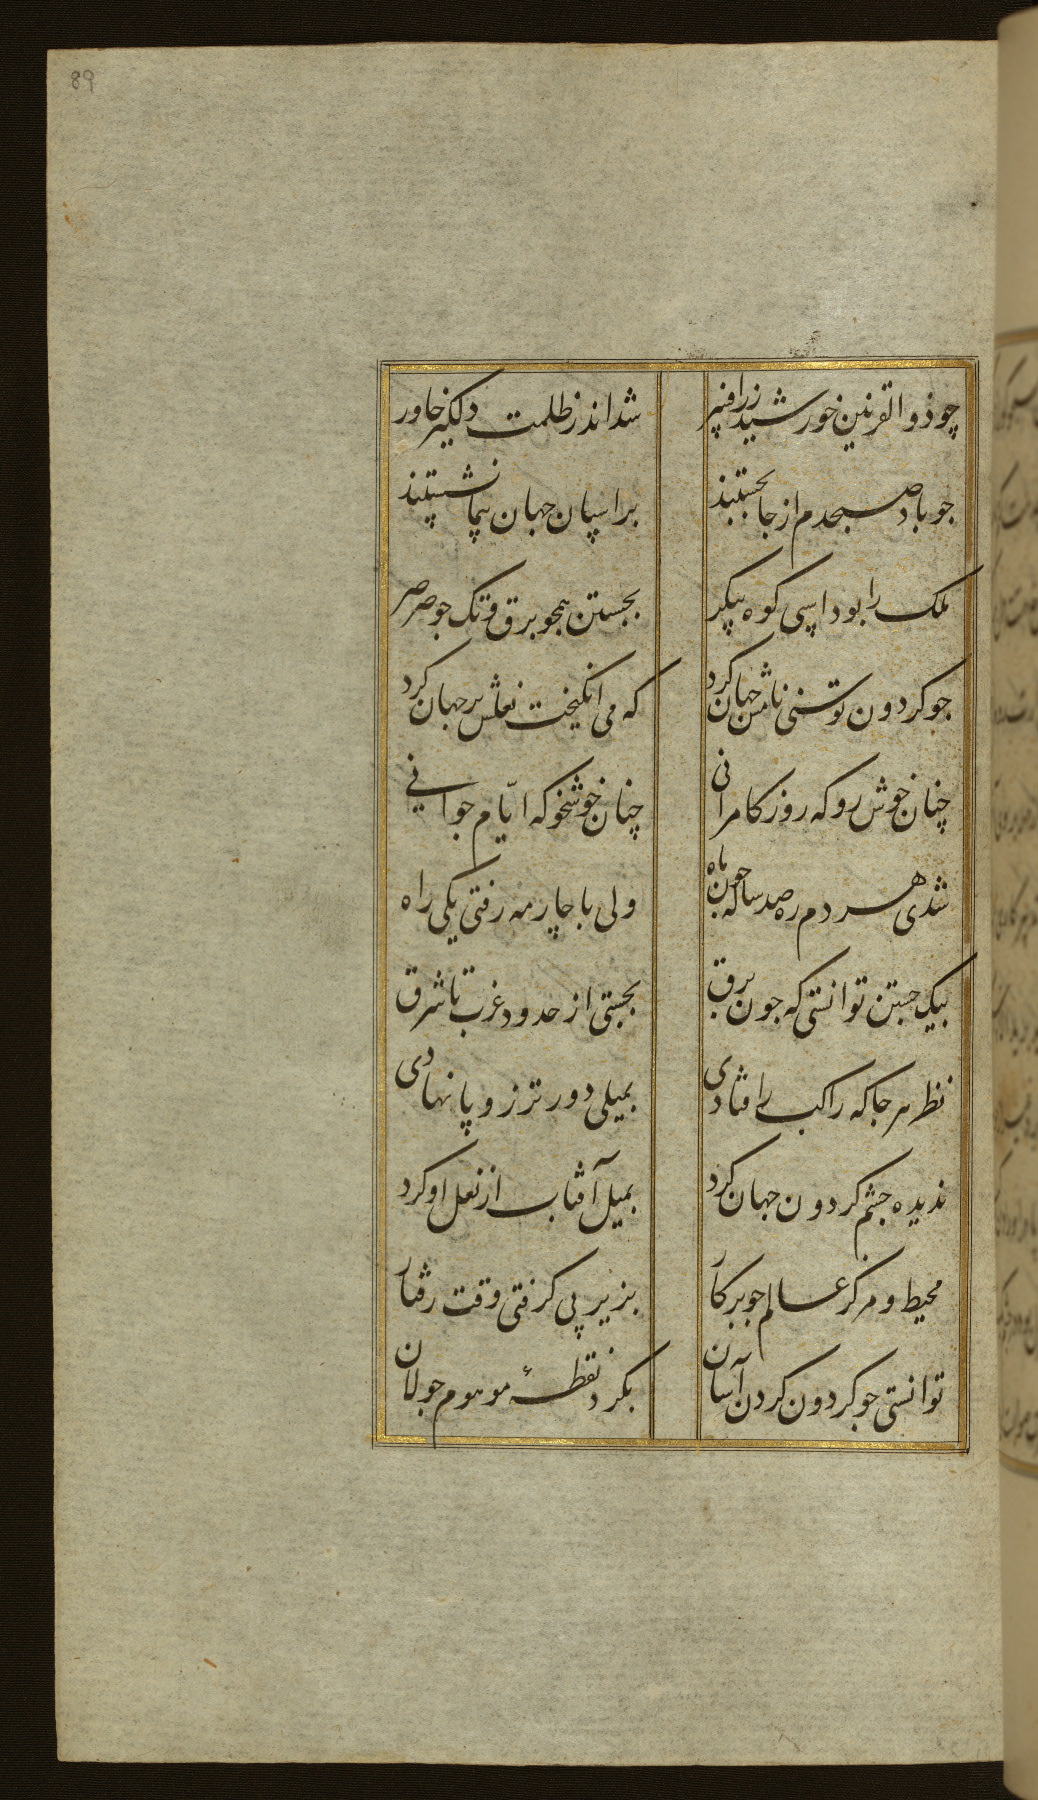 89
چو ذو القرنین خورشید زرافسر شد اندر ظلمت دلگیر خاور
جو باد صبحدم از جا بجستند بر اسپان جهان پیما نشستند
ملک را بود اسپی کوه پیکر بجستن همجو برق و تک جو صرصر
جو کردون توسنی نامش جهان کرد که می انکیخت نعلش بر جهان کرد
چنان خوش رو که روز کامرانی چنان خوشخو که ایّام جوانی
شدی هر دم ره صد ساله جون ماه ولی با چار مه رفتی یکی راه
بیک جستن توانستی که جون برق بجستی از حدود غرب تا شرق
نظر هر جا که راکب را فتادی بمیلی دورتر زو پا نهادی
ندیده جشم کردون جهان کرد بمیل آفتاب از نعل او کرد
محیط و مرکز عالم جو برکار بزیر پی کرفتی وقت رفتار
توانستی جو کردون کردن آسان بکرد نقطهٔ موهوم جولان